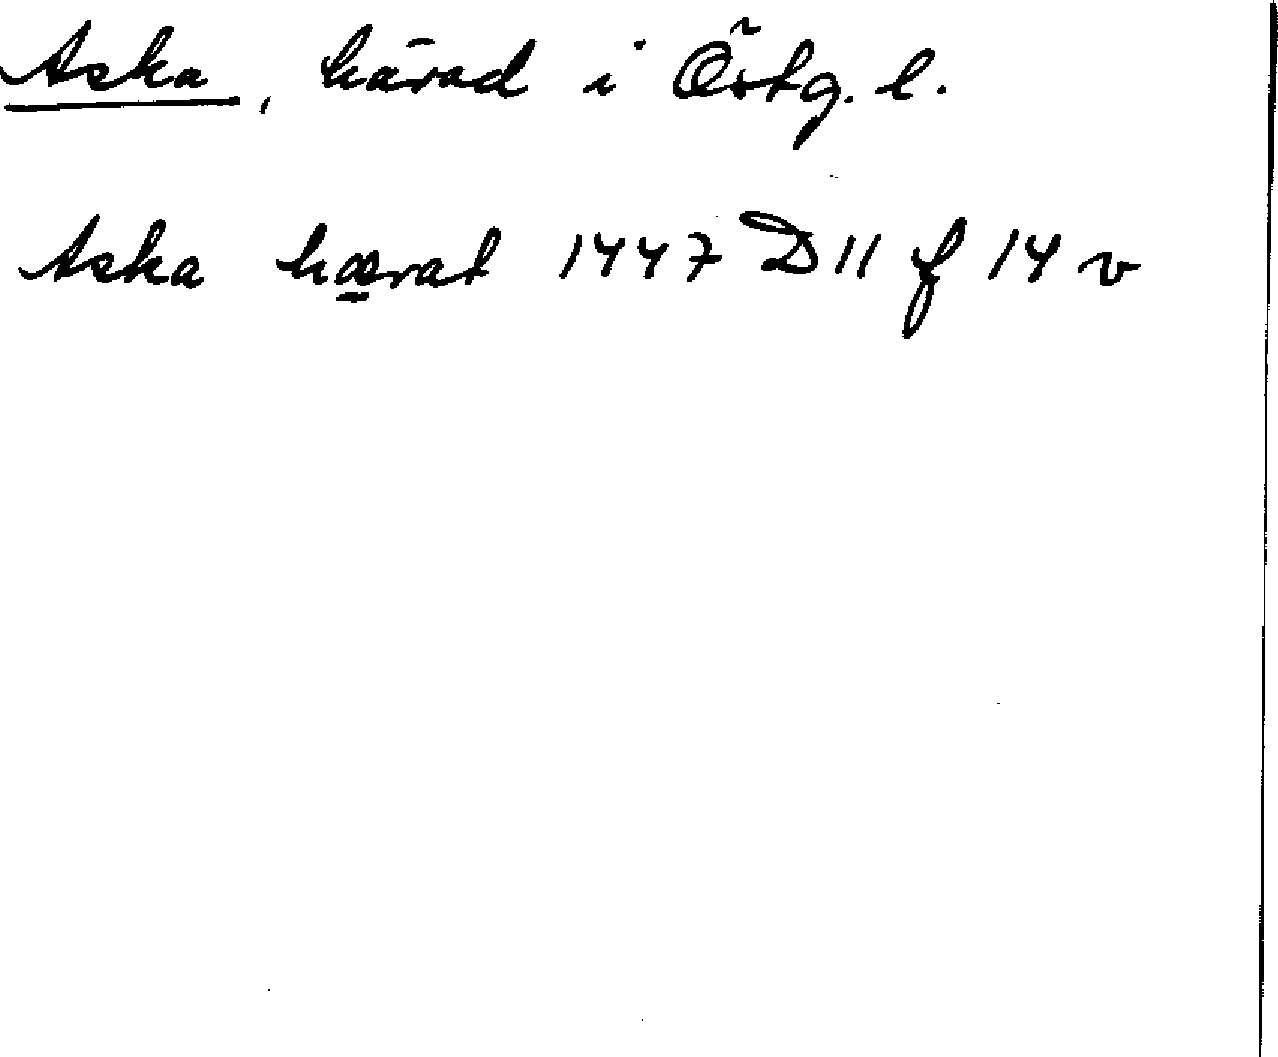 Aska, härad i Östg. l.
Aska hærat 1447 D11 f 14 v